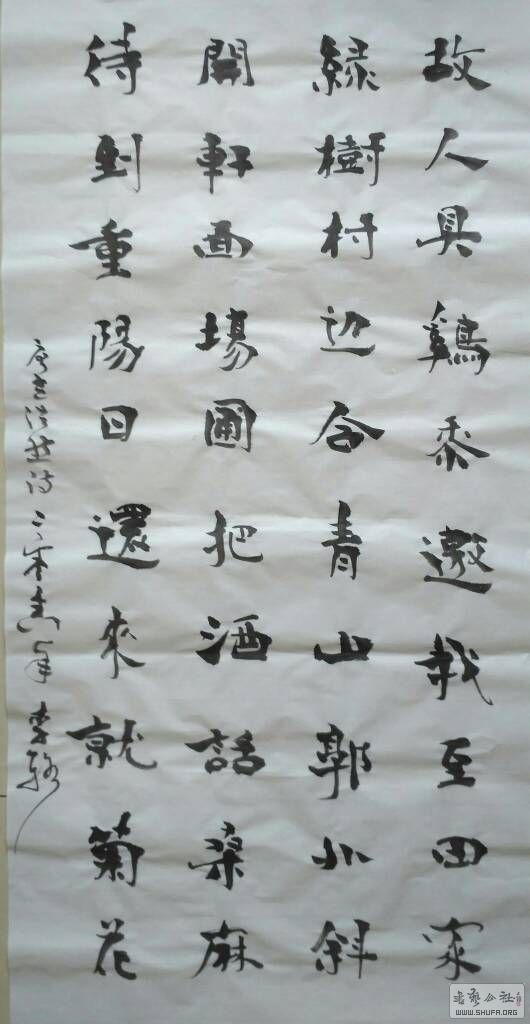 故人具鷄黍邀我至田家
綠樹村边合青山郭外斜
開軒面場圃把酒話桑麻
待到重陽日還來就菊花
唐孟浩然诗
书艺公社
WWW.SHUFA.ORG